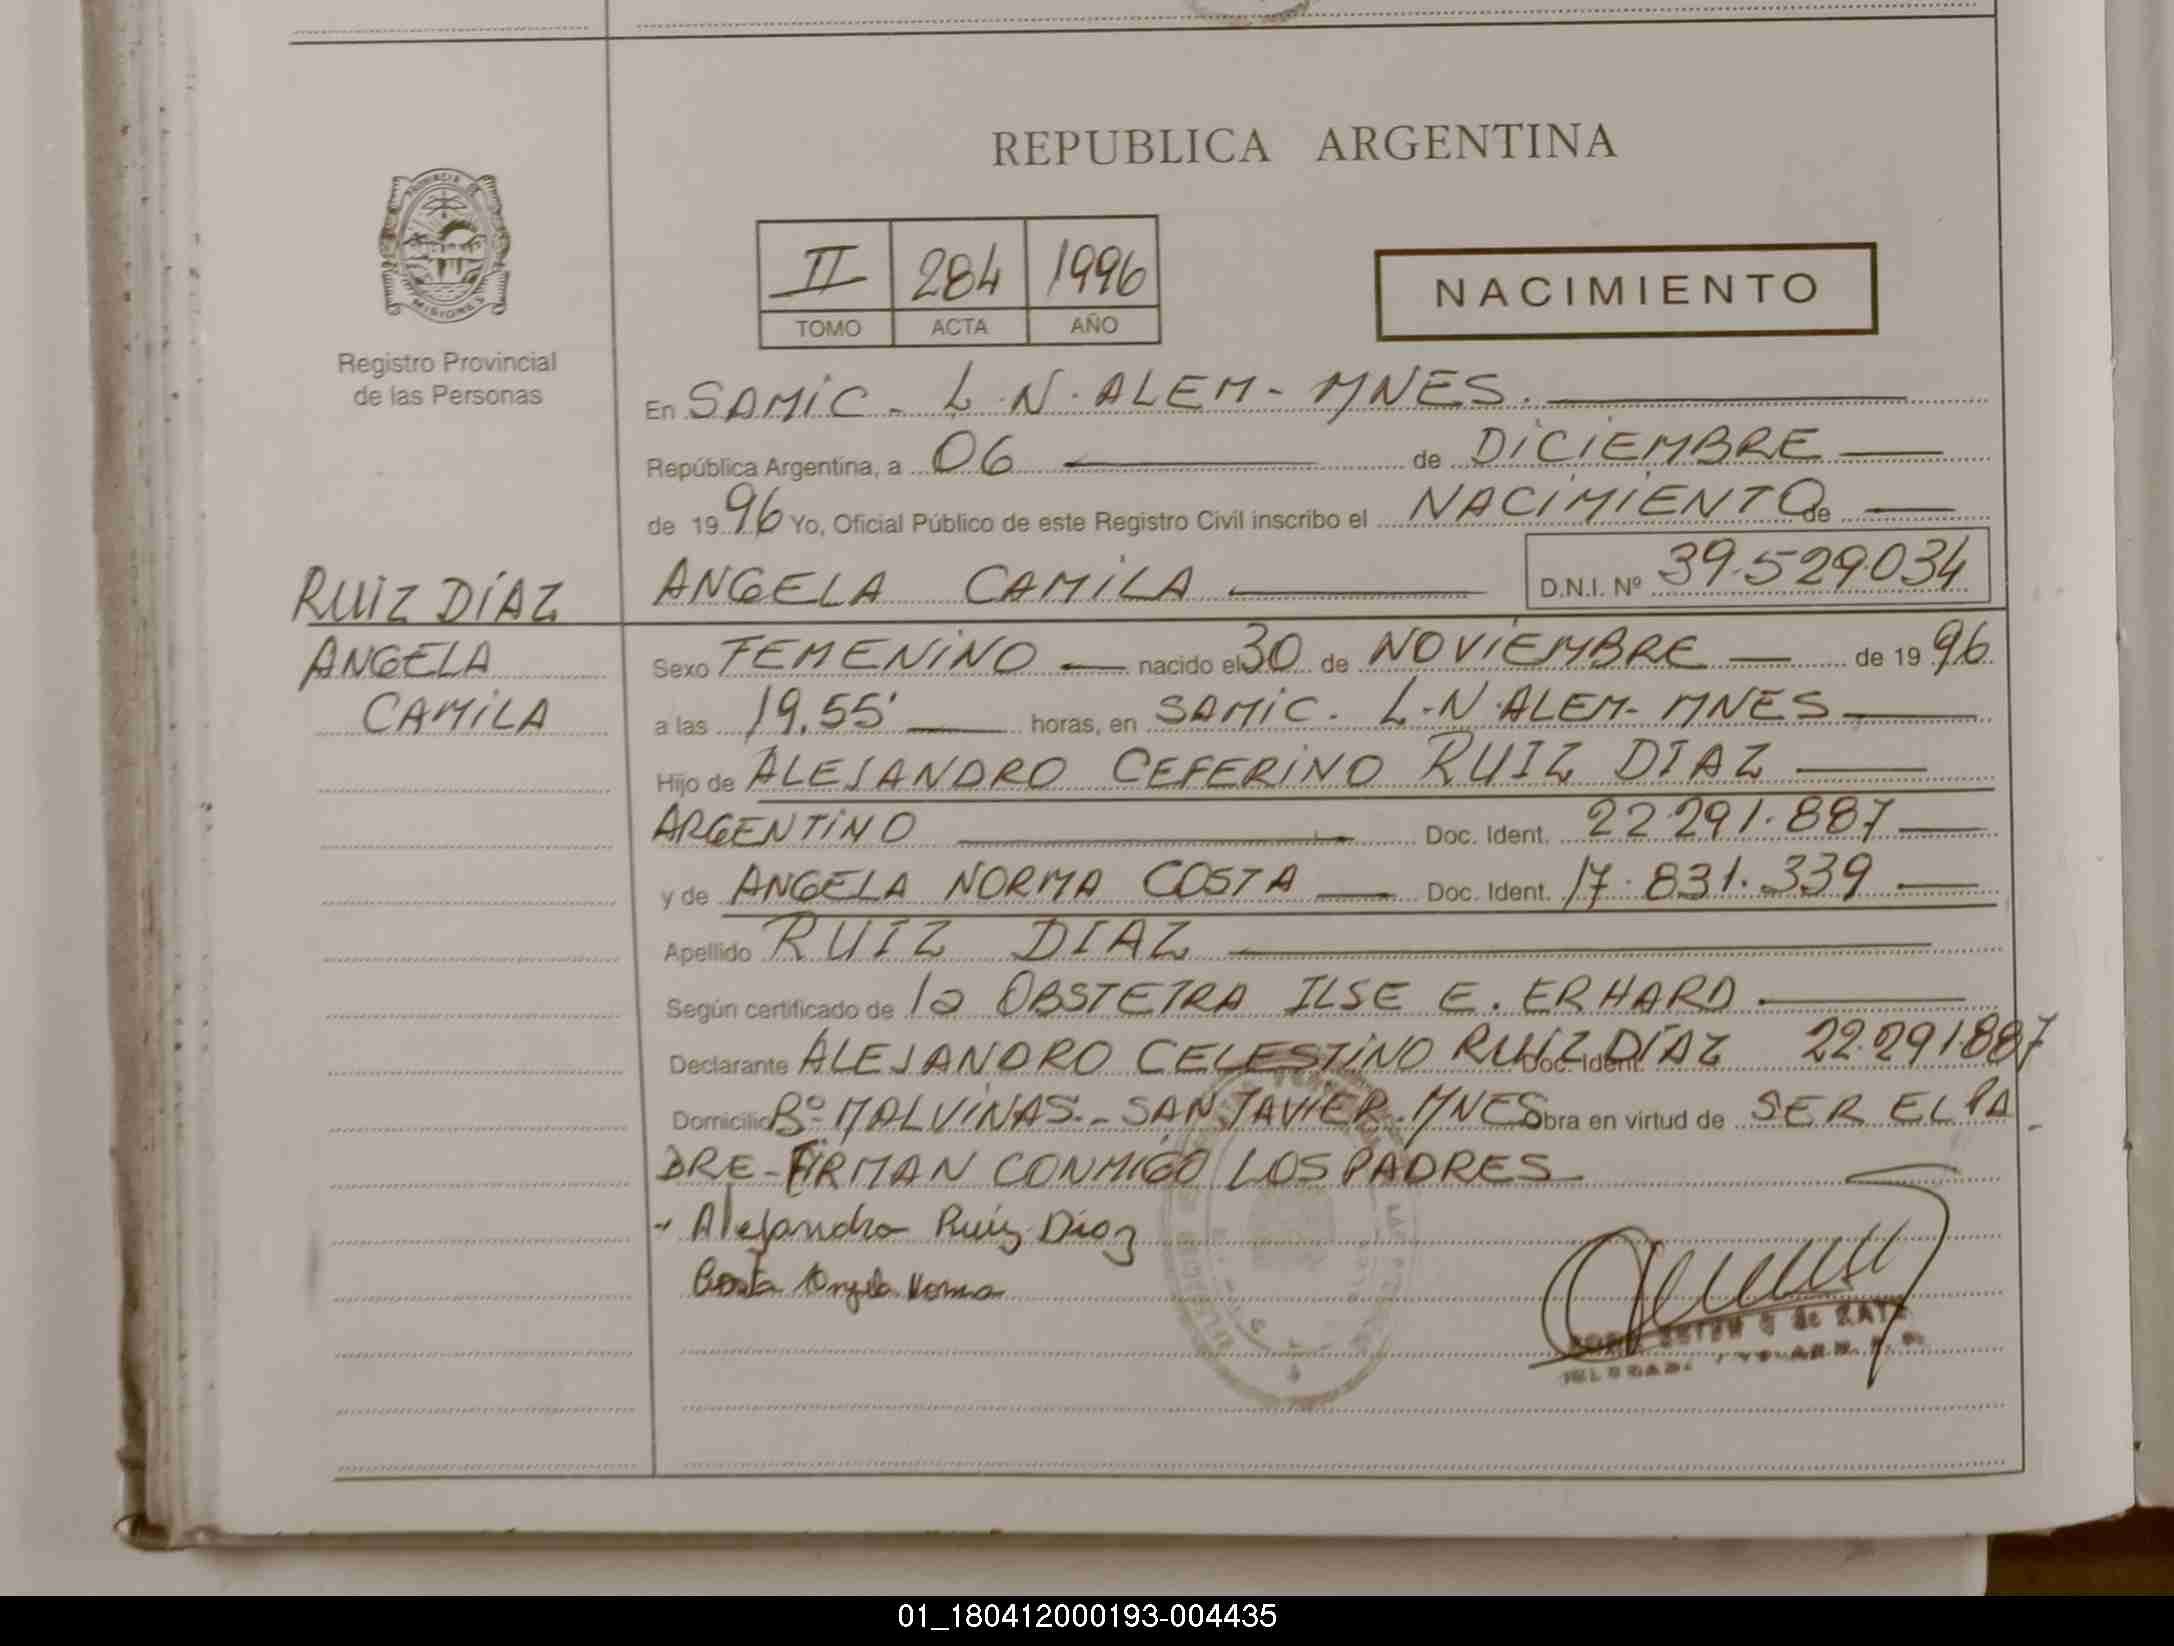 REPUBLICA ARGENTINA
PROVINCIA DE
MISIONES
Registro Provincial
de las Personas
II 284 1996
TOMO ACTA AÑO
NACIMIENTO
En SAMIC - L.N. ALEM - MNES.
República Argentina, a 06 de DICIEMBRE
de 1996 Yo, Oficial Público de este Registro Civil inscribo el NACIMIENTO de
RUIZ DÍAZ
ANGELA
CAMILA
ANGELA CAMILA D.N.I. Nº 39.529.034
Sexo FEMENINO nacido el 30 de NOVIEMBRE de 1996
a las 19.55' horas, en SAMIC. L.N. ALEM - MNES
Hijo de ALEJANDRO CEFERINO RUIZ DIAZ
ARGENTINO Doc. Ident. 22.291.887
y de ANGELA NORMA COSTA Doc. Ident. 17.831.339
Apellido RUIZ DIAZ
Según certificado de la OBSTETRA ILSE E. ERHARD
Declarante ALEJANDRO CELESTINO RUIZ DÍAZ Doc. Ident. 22.291887
Domicilio Bº MALVINAS - SAN JAVIER - MNES Obra en virtud de SER EL PA
DRE - FIRMAN CONMIGO LOS PADRES
- Alejandro Ruiz Diaz
Costa Angela Norma
01_180412000193-004435